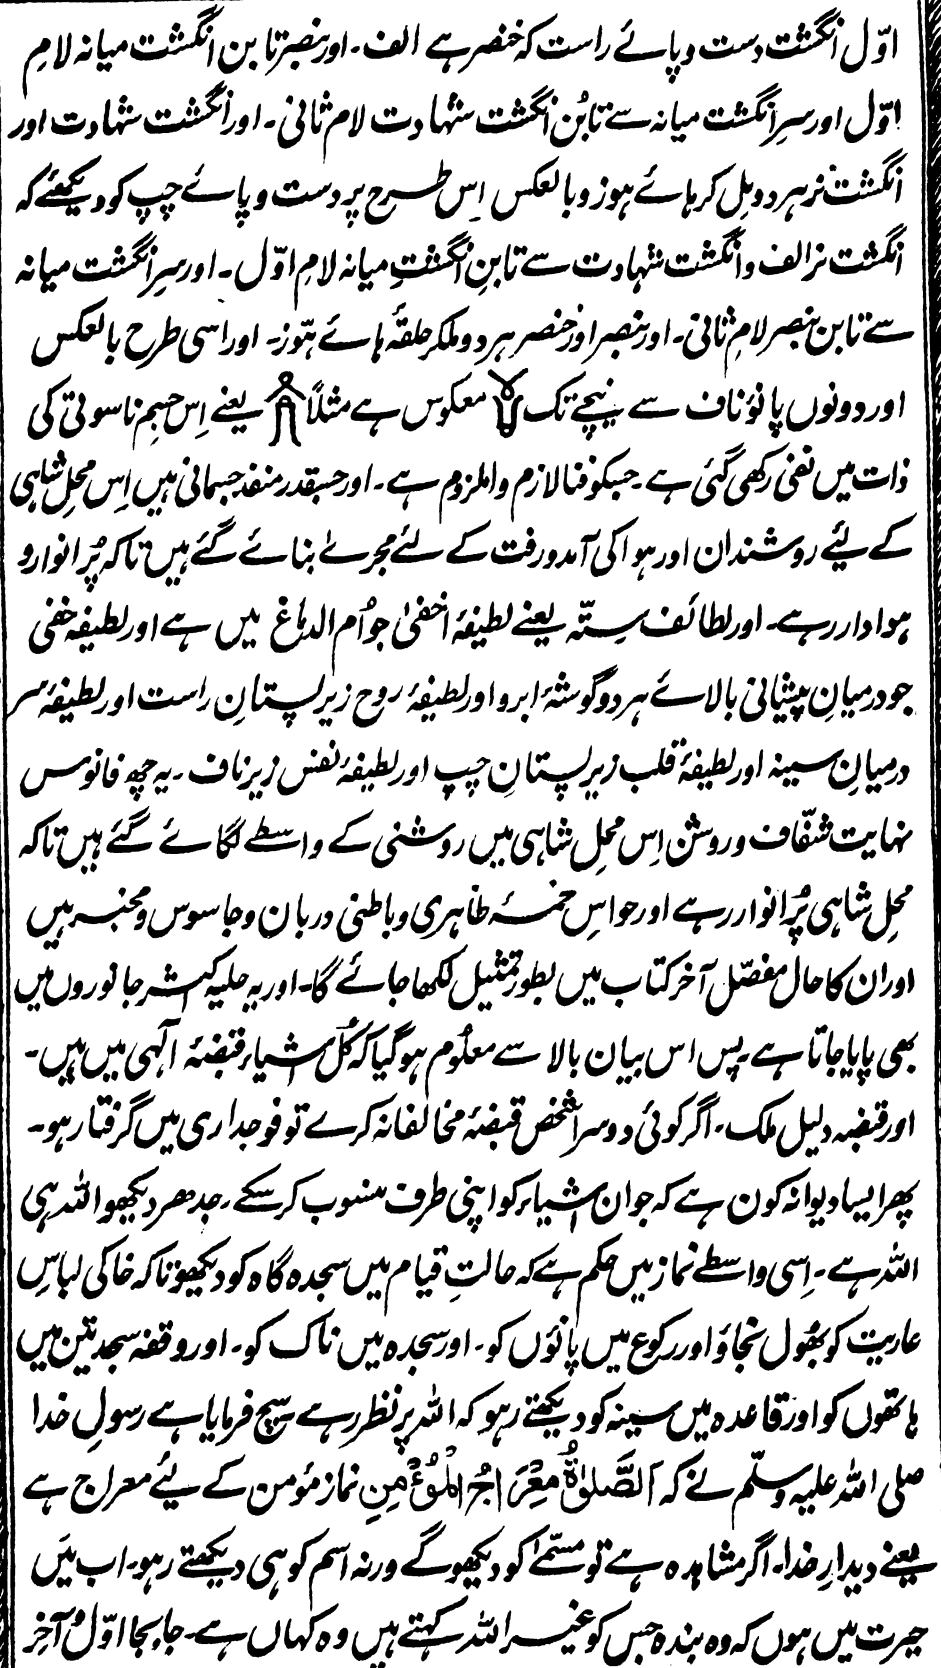 اوّل انگشت دست و پائے راست کہ خنصر ہے الف۔ اور بنصر تا بن انگشت میانہ لامِ
اوّل اور سرِ انگشت میانہ سے تا بُن انگشت شہادت لام ثانی۔ اور انگشت شہادت اور
انگشت نر ہر دو مِل کر ہائے ہوز و بالعکس اِس طرح پر دست و پائے چپ کو دیکھئے کہ
انگشت نر الف و انگشت شہادت سے تا بنِ انگشتِ میانہ لامِ اوّل۔ اور سرِ انگشت میانہ
سے تا بن بنصر لامِ ثانی۔ اور بنصر اور خنصر ہر دو ملکر حلقۂ ہائے ہوّز۔ اور اسی طرح بالعکس
اور دونوں پانؤ ناف سے نیچے تک معکوس ہے مثلاً یعنے اِس جسمِ ناسوتی کی
ذات میں نفی رکھی گئی ہے۔ جسکو فنا لازم والملزوم ہے۔ اور جسقدر منفذ جسمانی ہیں اِس محلِ شاہی
کے لیئے روشندان اور ہوا کی آمدورفت کے لئے مجرےٰ بنائے گئے ہیں تاکہ پُر انوار و
ہوادار رہے۔ اور لطائف ستّہ یعنے لطیفۂ اخفیٰ جو اُم الدماغ میں ہے اور لطیفہ خفی
جو درمیانِ پیشانی بالائے ہر دو گوشۂ ابرو اور لطیفۂ روح زیر پستانِ راست اور لطیفۂ سر
درمیانِ سینہ اور لطیفۂ قلب زیر پستانِ چپ اور لطیفۂ نفس زیر ناف۔ یہ چھ فانوس
نہایت شفّاف و روشن اِس محلِ شاہی میں روشنی کے واسطے لگائے گئے ہیں تاکہ
محلِ شاہی پُر انوار رہے اور حواسِ خمسۂ ظاہری و باطنی دربان و جاسوس و مخبر ہیں
اور ان کا حال مفصّل آخر کتاب میں بطور تمثیل لکھا جائے گا۔ اور یہ حلیہ اکثر جانوروں میں
بھی پایا جاتا ہے۔ پس اس بیان بالا سے معلُوم ہوگیا کہ کُل اشیاء قبضۂ الٰہی میں ہیں۔
اور قبضہ دلیل ملک۔ اگر کوئی دوسرا شخص قبضۂ مخالفانہ کرے تو فوجداری میں گرفتار ہو۔
پھر ایسا دیوانہ کون ہے کہ جو ان اشیاء کو اپنی طرف منسوب کرسکے۔ جدھر دیکھو اللہ ہی
اللہ ہے۔ اِسی واسطے نماز میں حکم ہے کہ حالتِ قیام میں سجدہ گاہ کو دیکھو تاکہ خاکی لباسِ
عاریت کو بھُول نجاؤ اور رکوع میں پانؤں کو۔ اور سجدہ میں ناک کو۔ اور وقفہ سجدتین میں
ہاتھوں کو اور قاعدہ میں سینہ کو دیکھتے رہو کہ اللہ پر نظر رہے سچ فرمایا ہے رسولِ خدا
صلی اللہ علیہ وسلّم نے کہ اَلصَّلٰوۃُ مِعْرَاجُ الْمُؤْمِنِ نماز مؤمن کے لیئے معراج ہے
یعنے دیدارِ خدا۔ اگر مشاہدہ ہے تو مسمّےٰ کو دیکھو گے ورنہ اسم کو ہی دیکھتے رہو۔ اب میں
حیرت میں ہوں کہ وہ بندہ جس کو غیر اللہ کہتے ہیں وہ کہاں ہے۔ جا بجا اوّل و آخر